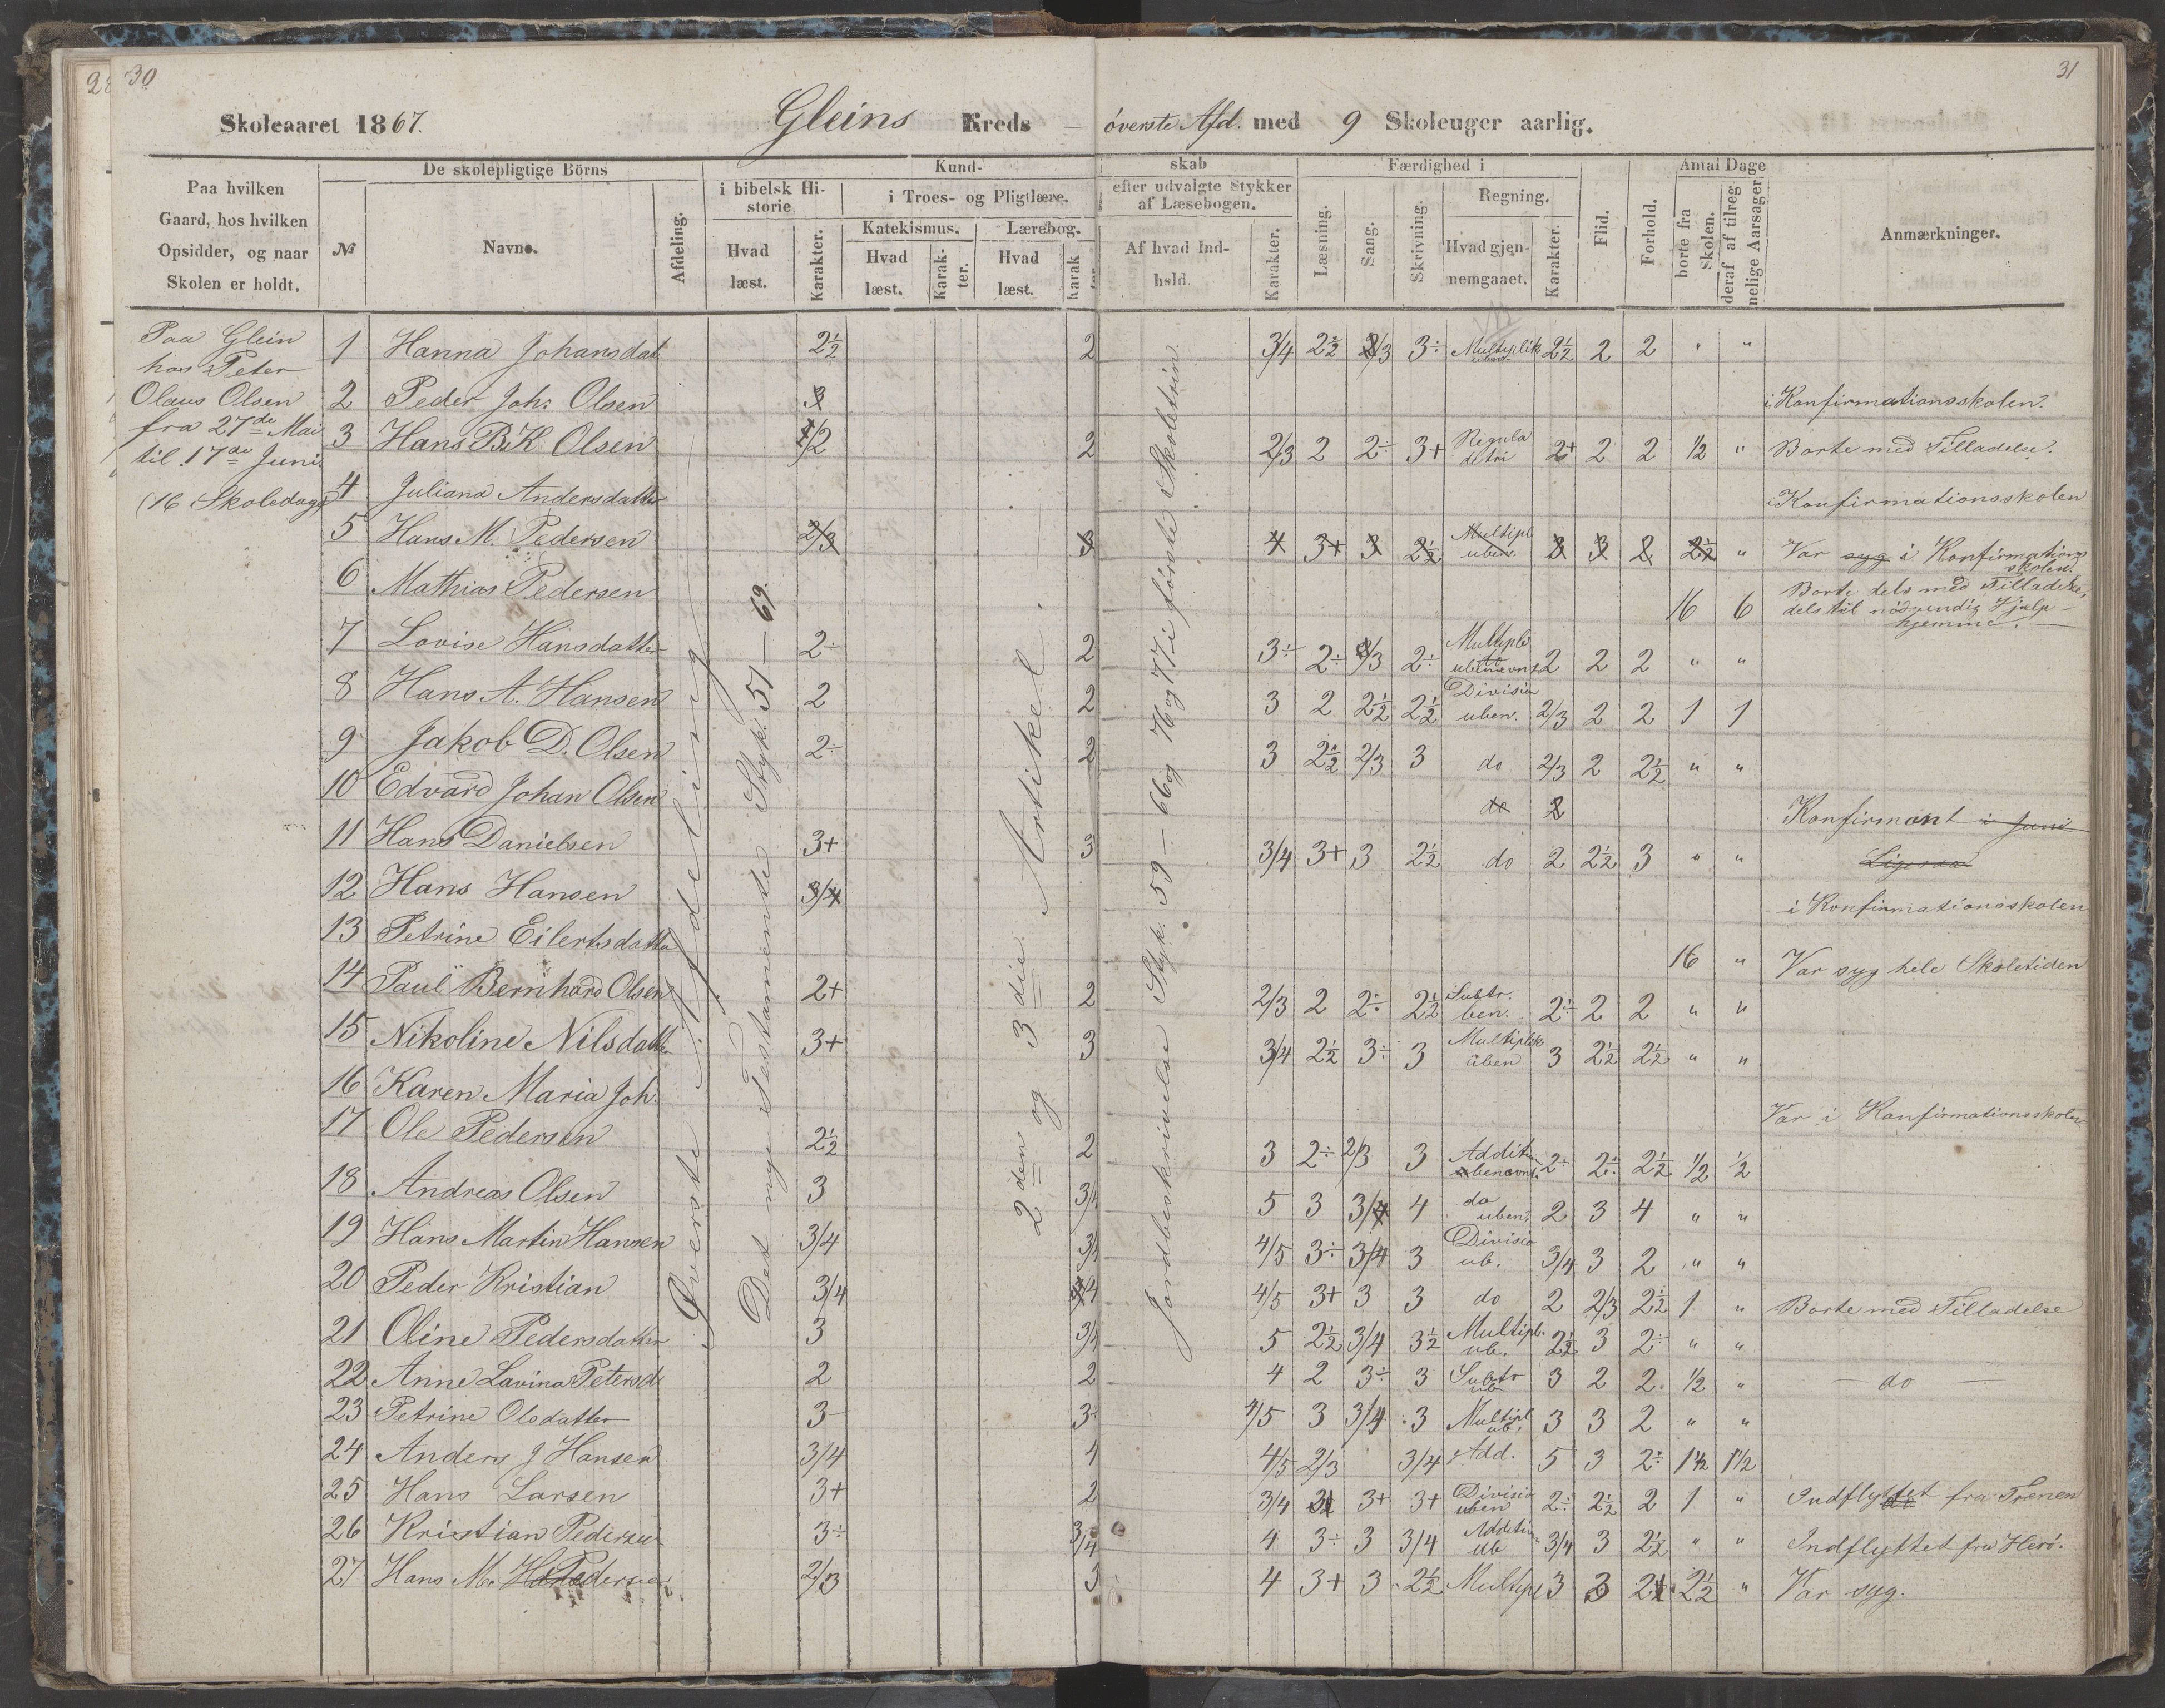 30
31
Skoleaaret 1867. Gleins Kreds — överste Afd. med 9 Skoleuger aarlig.
Paa hvilken Gaard, hos hvilken Opsidder, og naar Skolen er holdt.
De skolepligtige Börns
№
Navne.
Afdeling.
Kund-
skab
i bibelsk Historie
Hvad læst.
Karakter.
i Troes- og Pligtlære.
Katekismus.
Hvad læst.
Karakter.
Lærebog.
Hvad læst.
Karak
efter udvalgte Stykker af Læsebogen.
Af hvad Indhold.
Karakter.
Færdighed i
Læsning.
Sang.
Skrivning.
Regning.
Hvad gjennemgaaet.
Karakter.
Flid.
Forhold.
Antal Dage
borte fra Skolen.
deraf af tilregnelige Aarsager
Anmærkninger.
Paa Glein
hos Peter
Olaus Olsen
fra 27de Mai
til 17de Juni.
(16 Skoledage
Överste Afdeling
Det nye Testamente Styk. 51 — 69.
2den og 3die Artikel.
Jordbeskrivelse Styk. 59 — 66 og 76 og 77 i förste Skoletrin.
1 Hanna Johansdat 2½ 2 3/4 2½ 2/3 3÷ Multiplik uben 2½ 2 2 " "
2 Peder Joh: Olsen 3 i Konfirmationsskolen.
3 Hans B.K. Olsen 1/2 2 2/3 2 2÷ 3+ Regula detri 2+ 2 2 ½ " Borte med Tilladelse.
4 Juliana Andersdatter i Konfirmationsskolen
5 Hans M. Pedersen 2/3 3 4 3+ 3 2½ Multipl uben. 3 3 2 2½ " Var syg i Konfirmations
skolen.
6 Mathias Pedersen 16 6 Borte dels med Tilladelse,
dels til nödvendig Hjælp
hjemme.
7 Lovise Hansdatter 2÷ 2 3÷ 2÷ 2/3 2÷ Multipli ubenævnt 2 2 2 " "
8 Hans A. Hansen 2 2 3 2 2½ 2½ Divisio uben. 2/3 2 2 1 1
9 Jakob D. Olsen 2÷ 2 3 2½ 2/3 3 do 2/3 2 2½ " "
10 Edvard Johan Olsen do 2 Konfirmant i Juni
11 Hans Danielsen 3+ 3 3/4 3+ 3 2½ do 2 2½ 3 " " Ligesaa
12 Hans Hansen 3/4 i Konfirmationsskolen
13 Petrine Eilertsdatter 16 " Var syg hele Skoletiden
14 Paul Bernhard Olsen 2+ 2 2/3 2 2÷ 2½ Subtr. ben. 2÷ 2 2 " "
15 Nikoline Nilsdatter 3+ 3 3/4 2½ 3÷ 3 Multiplik uben 3 2½ 2½ " "
16 Karen Maria Joh. Var i Konfirmationsskolen
17 Ole Pedersen 2½ 2 3 2÷ 2/3 3 Additi benævnt. 2÷ 2÷ 2½ ½ ½
18 Andreas Olsen 3 3/4 5 3 3/4 4 do uben. 2 3 4 " "
19 Hans Martin Hansen 3/4 3/4 4/5 3÷ 3/4 3 Divisio ub. 3/4 3 2 " "
20 Peder Kristian 3/4 4 4/5 3+ 3 3 do 2 2/3 2½ 1 " Borte med Tilladelse
21 Oline Pedersdatter 3 3/4 5 2½ 3/4 3½ Multipl. ub. 2½ 3 2÷ " "
22 Anne Lavina Petersd 2 2 4 2 3÷ 3 Subtr ub 3 2 2 ½ " — do —
23 Petrine Olsdatter 3 3÷ 4/5 3 3/4 3 Multipl ub. 3 3 2 " "
24 Anders J Hansen 3/4 4 4/5 2/3 3/4 Add. 5 3 2÷ 1½ 1½
25 Hans Larsen 3+ 2 3/4 3+ 3+ Divisio uben 2÷ 2½ 2 1 " Indflyttet fra Trænen
26 Kristian Pedersen 3÷ 3/4 4 3÷ 3 3/4 Additio ub 3/4 3 2½ " " Indflyttet fra Herö.
27 Hans M. Pedersen 2/3 3 4 3+ 3 2½ Multipl 3 3 2 2½ " Var syg.